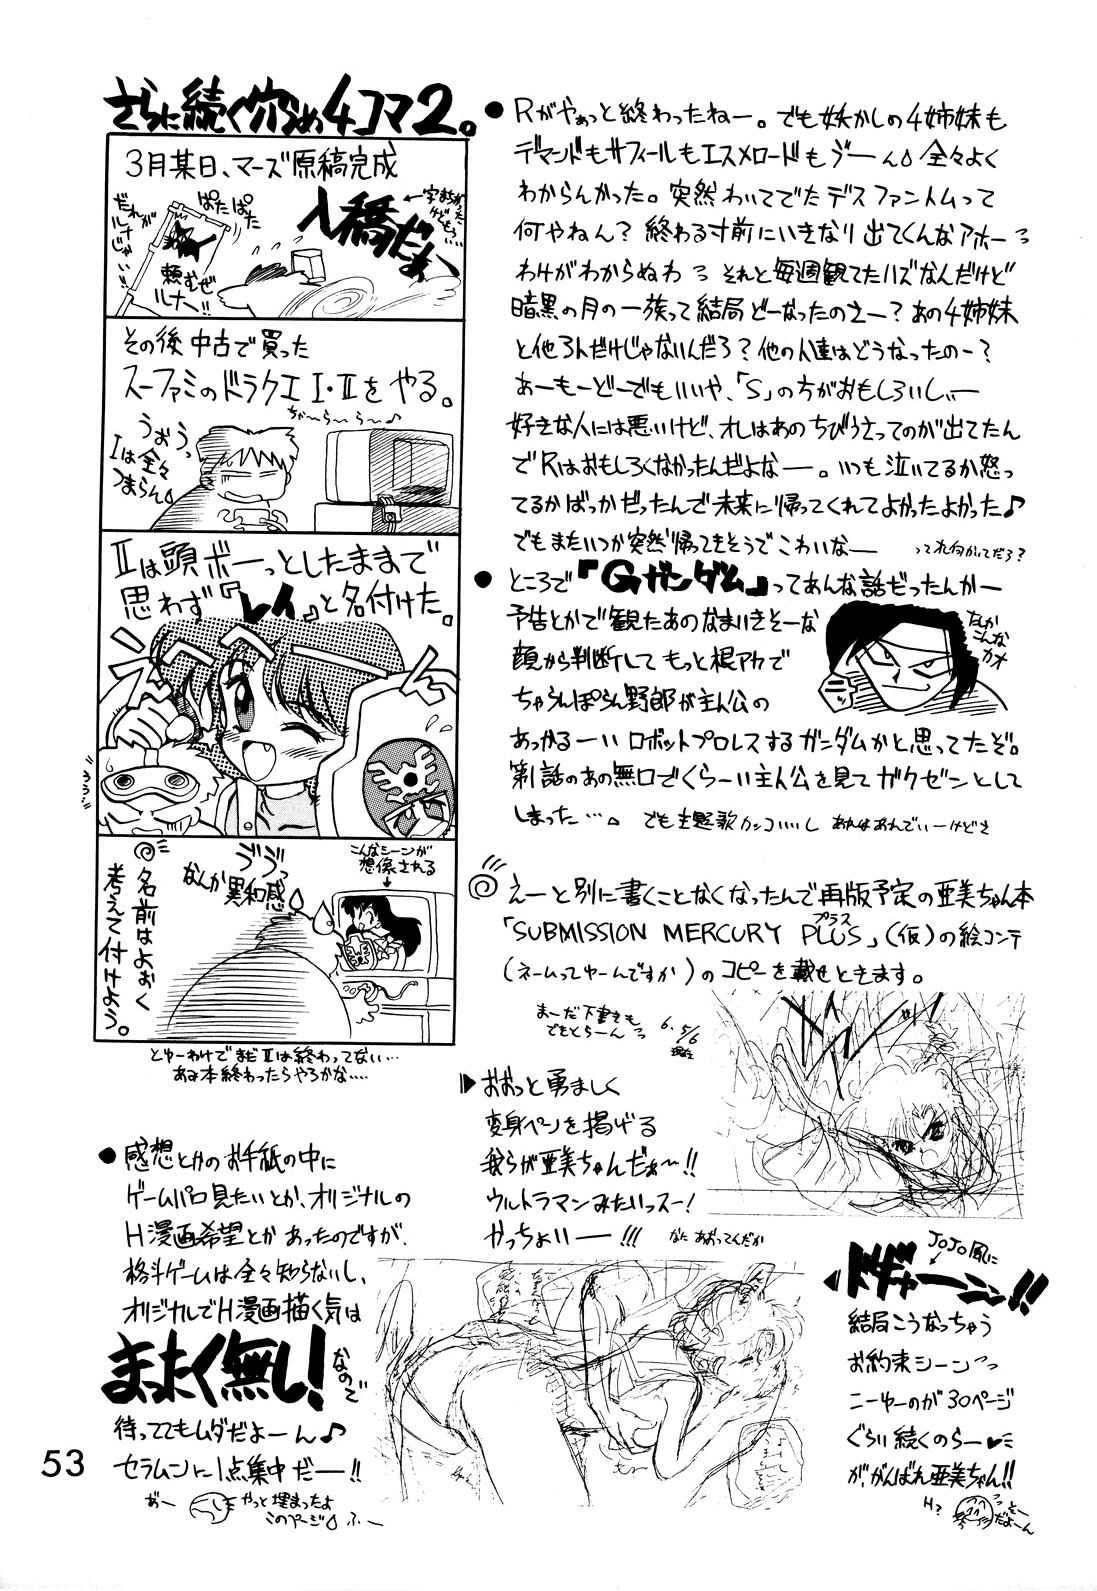 さらに続く穴うめ4コマ2。
3月某日、マーズ原稿完成
ぱたぱた
だれが
ルナじゃい
頼むぜ
ルナー!!
入稿だぁ
その後中古で買った
スーファミのドラクエⅠ・Ⅱをやる。
ちゃ〜ら〜ら〜♪
うぉぅっ
Ⅰは全々
つまらん
Ⅱは頭ボーっとしたままで
思わず『レイ』と名付けた。
うう
◎名前はよぉく
考えて付けよう。
ヴヴっ
なんか異和感
こんなシーンが
想像される
とゆーわけでまだⅡは終わってない…
あみ本終わったらやろかな….
●Rがやぁっと終わったねー。でも妖かしの4姉妹も
デマンドもサフィールもエスメロードもゔーん 全々よく
わからんかった。突然わいてでたデスファントムって
何やねん?終わる寸前にいきなり出てくんなアホーっ
わけがわからぬわっ それと毎週観てたハズなんだけど
暗黒の月の一族って結局どーなったのさー?あの4姉妹
と他3人だけじゃないんだろ?他の人達はどうなったのー?
あーもーどーでもいいや、「S」の方がおもしろいしぃー
好きな人には悪いけど、オレはあのちびうさってのが出てたん
でRはおもしろくなかったんだよなー。いつも泣いてるか怒っ
てるかばっかだったんで未来に帰ってくれてよかったよかった♪
でもまたいつか突然帰ってきそうでこわいなー
●ところで『Gガンダム』ってあんな話だったんかー
予告とかで観たあのなまいきそーな
顔から判断してもっと根アカで
ちゃらんぽらん野郎が主人公の
あっかるーいロボットプロレスするガンダムかと思ってたぞ。
第1話のあの無口でくらーい主人公を見てガクゼンとして
しまった…。でも主題歌カッコいいし あれはあれでいーけどさ
なんか
こんな
カオ
◎えーと別に書くことなくなったんで再版予定の亜美ちゃん本
「SUBMISSION MERCURY PLUS」(仮)の絵コンテ
プラス
(ネームってゆーんですか)のコピーを載せときます。
まーだ下書きも
でもとらーんっ
6.5/6
現在
▶おおっと勇ましく
変身ペンを掲げる
我らが亜美ちゃんだぁ〜!!
ウルトラマンみたいっスー!
かっちょいー!!!
なに あおってんだか
JoJo風に
ドギャーーン!!
結局こうなっちゃう
お約束シーンっ
こーゆーのが30ページ
ぐらい続くのらー♥
が、がんばれ亜美ちゃん!!
H?
だよーん
●感想とかのお手紙の中に
ゲームパロ見たいとか、オリジナルの
H漫画希望とかあったのですが、
格斗ゲームは全々知らないし、
オリジナルでH漫画描く気は
まったく無し!なので
待っててもムダだよーん♪
セラムンに1点集中だー!!
おー
やっと埋まったよ
このページ ふー
53